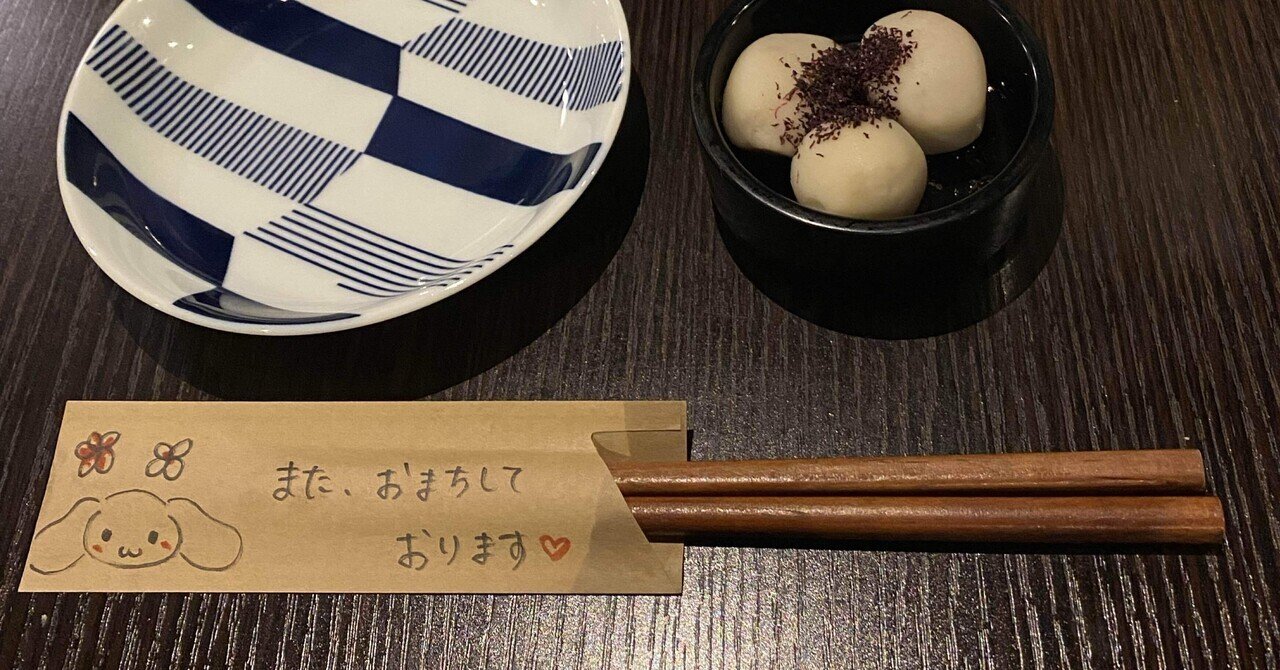 また、おまちして
おります♡